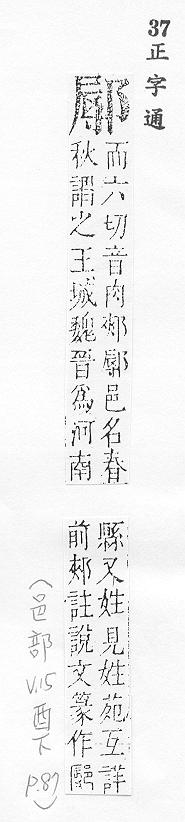 37 正字通
鄏
而六切音肉郟鄏邑名春
秋謂之王城魏晉爲河南
縣又姓見姓苑互詳
前郟註說文篆作
(邑部 V.15 酉下 p.87)